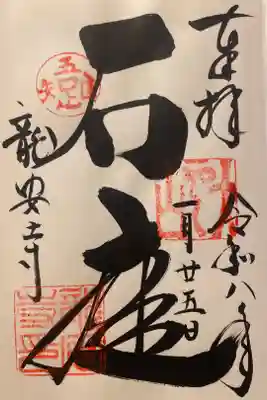 奉拝
令和八年
一月廿五日
石庭
龍安寺